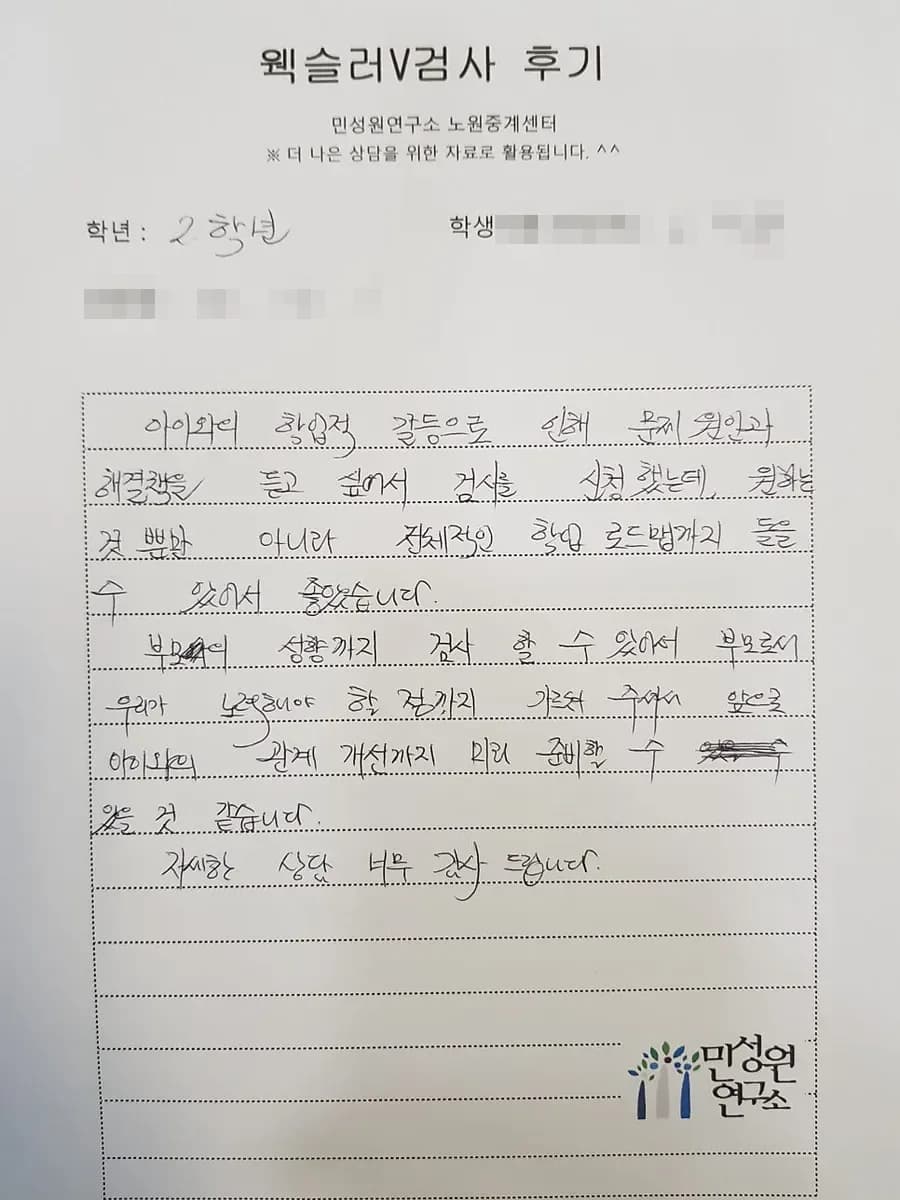 웩슬러V검사 후기
민성원연구소 노원중계센터
※ 더 나은 상담을 위한 자료로 활용됩니다. ^^
학년 : 2학년 학생
아이와의 학업적 갈등으로 인해 문제 원인과
해결책을 듣고 싶어서 검사를 신청했는데, 원하는
것 뿐만 아니라 전체적인 학업 로드맵까지 들을
수 있어서 좋았습니다.
부모의 성향까지 검사 할 수 있어서 부모로서
우리가 노력해야 할 점까지 가르쳐 주셔서 앞으로
아이와의 관계 개선까지 미리 준비할 수
있을 것 같습니다.
자세한 상담 너무 감사 드립니다.
민성원
연구소